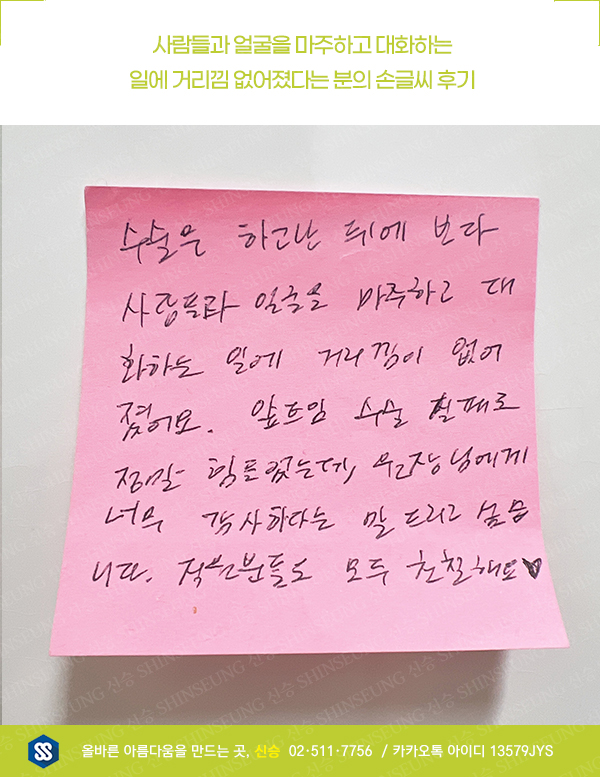 사람들과 얼굴을 마주하고 대화하는
일에 거리낌 없어졌다는 분의 손글씨 후기
수술은 하고난 뒤에 보다
사람들과 얼굴을 마주하고 대
화하는 일에 거리낌이 없어
졌어요. 앞트임 수술 실패로
정말 힘들었는데, 원장님에게
너무 감사하다는 말 드리고 싶습
니다. 직원분들도 모두 친절해요♥
SHINSEUNG 신승
올바른 아름다움을 만드는 곳, 신승 02·511·7756 / 카카오톡 아이디 13579JYS